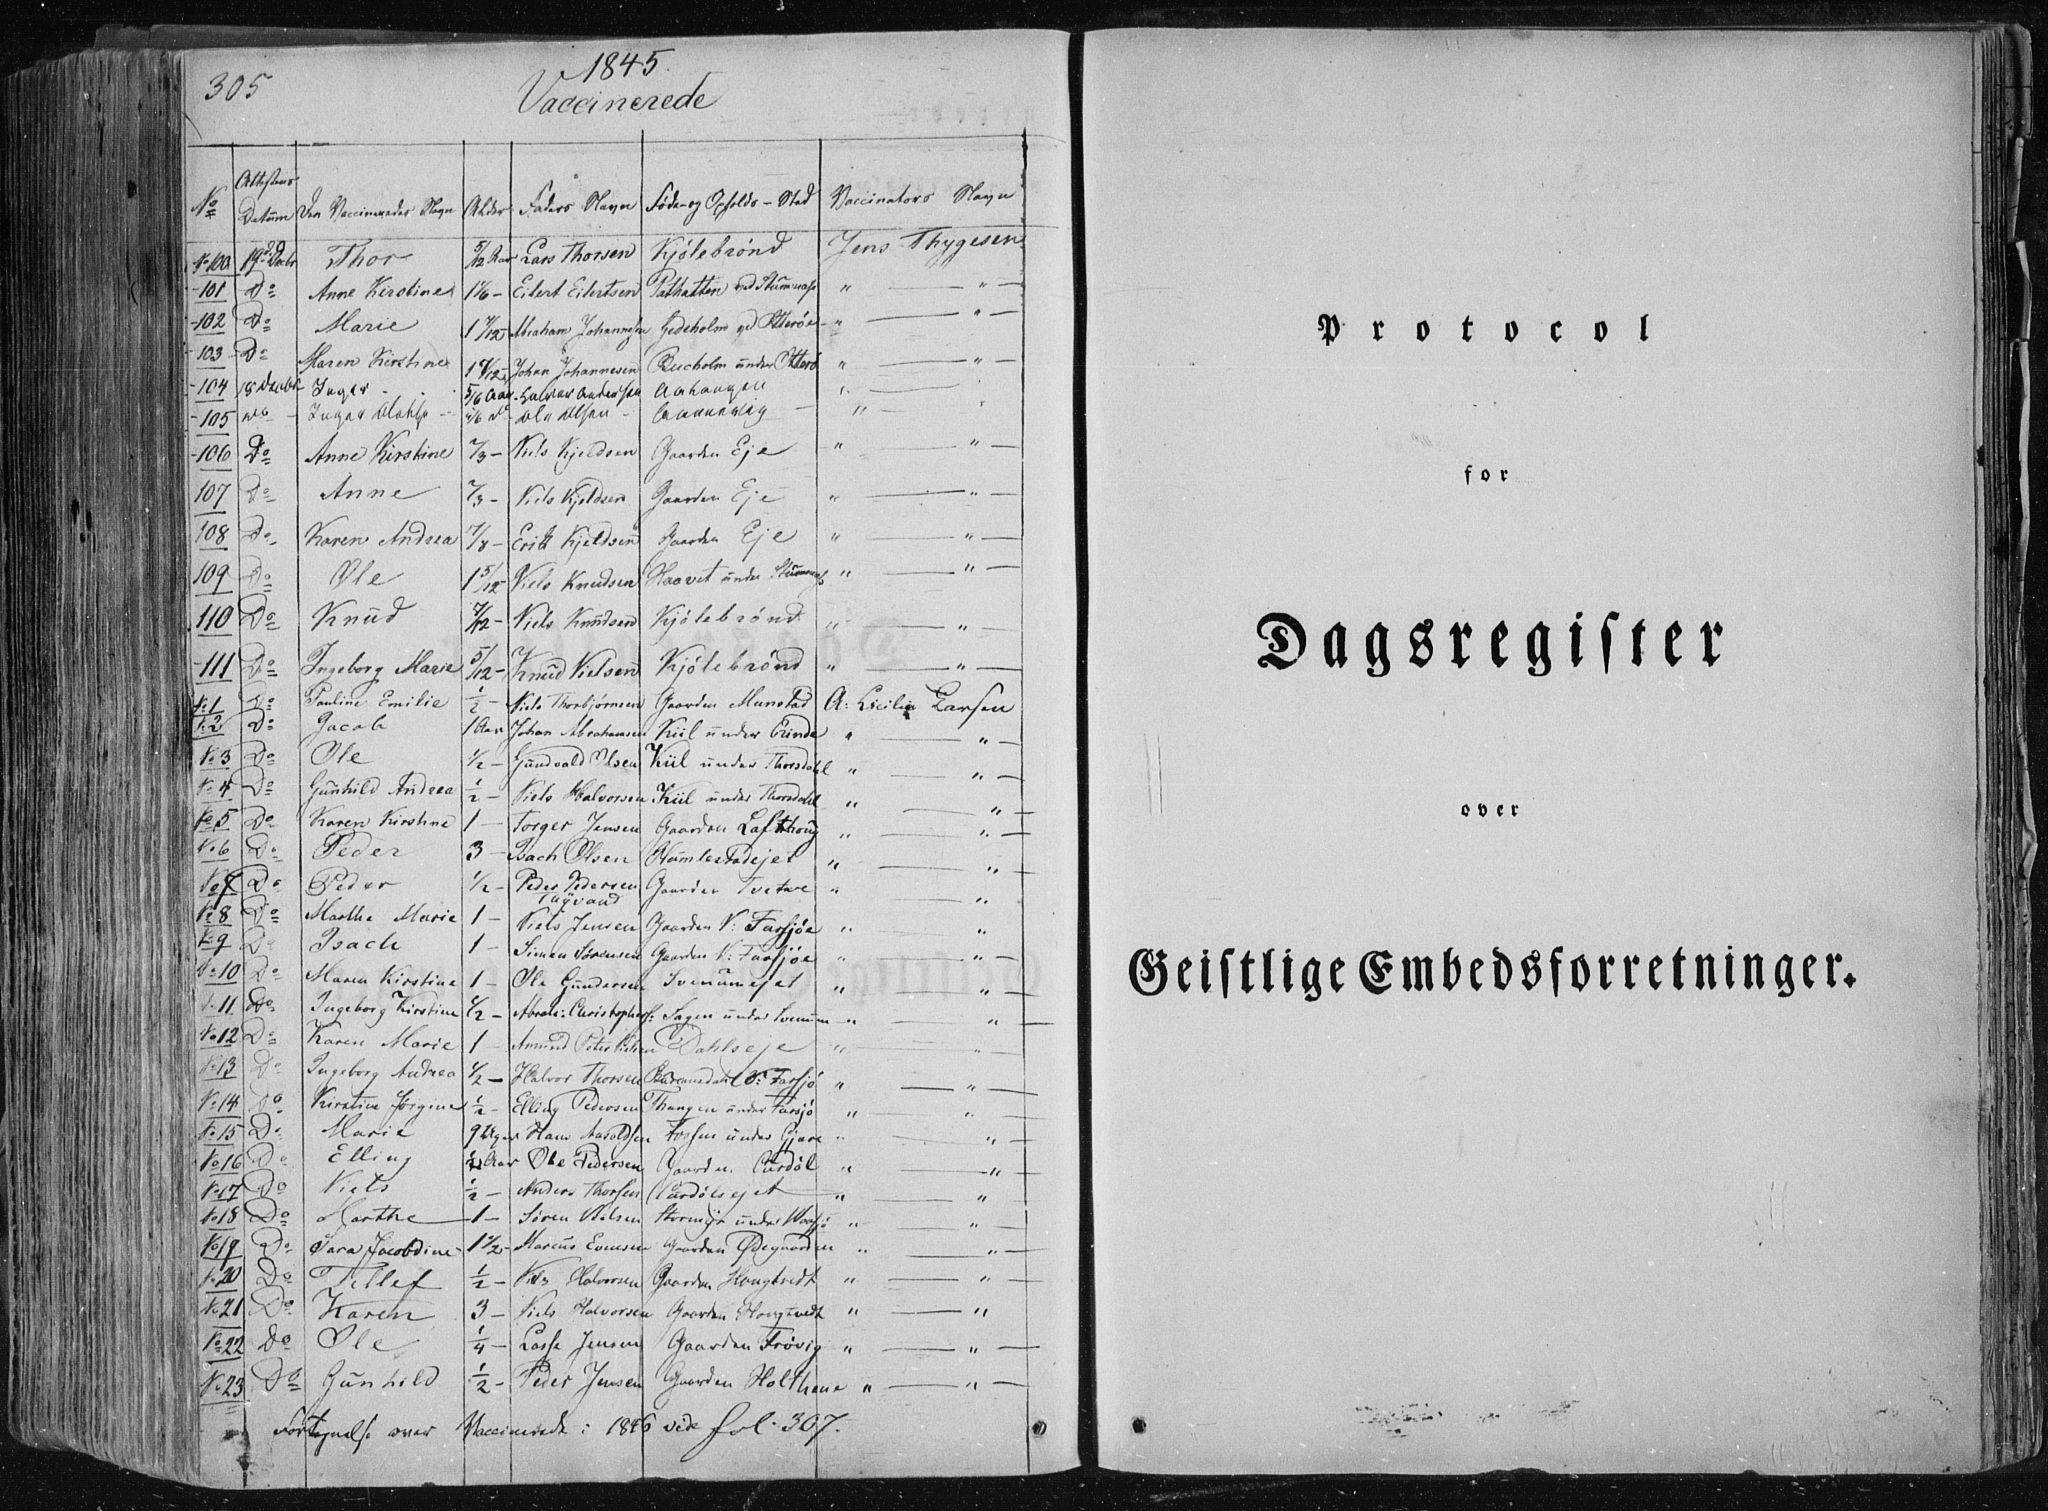 305
1845.
Vaccinerede
No Attestens Datum Den Vaccineredes Navn Alder Faders Navn Føde- og Opholds-Sted Vaccinators Navn
No 100 19de Decbr Thor 5/12 Aar Lars Thorsen Kjølebrønd Jens Thygesen
101 Do Anne Kirstine 1 1/6 - Eilert Eilertsen ved " — " —
102 Do Marie 1 7/12 - Abraham Johannesen Gedeholm Otterøe " — " —
103 Do Maren Kirstine Johan Johannesen under Otterø " — " —
104 18 Decbr Inger 5/6 Aar Halvor Andersen
105 Inger Ole Olsen Aanevig "
106 Do Anne Kirstine 7/3 - Niels Kjeldsen Gaarden Eje " — " —
107 Do Anne 7/3 - Niels Kjeldsen Gaarden Eje " — " —
108 Do Karen Andrea 7/8 - Erik Kjeldsen Gaarden Eje " — " —
109 Do Ole 1 5/12 Niels Knudsen Haavet under " — " —
110 Do Knud 7/12 - Niels Knudsen Kjølebrønd " — "
111 Do Ingeborg Marie 5/12 - Knud Nielsen Kjølebrønd " — " —
No 1 Do Pauline Emilie 1/2 - Niels Thorbjørnsen Gaarden Munstad A: Cicilia Larsen
No 2 Do Jacob 1 Aar Johan Abrahamsen Kiil under " — " —
No 3 Do Ole 1/2 - Gundvald Olsen Kiil under Thorsdahl " — " —
No 4 Do Gunhild Andrea 1/2 - Niels Halvorsen Kiil under Thorsdahl " — " —
No 5 Do Karen Kirstine 1 - Torger Jensen Gaarden Lafthoug " — " —
No 6 Do Peder 3 - Isach Olsen Humlestadejet " — " —
No 7 Do Peder 1/2 - Peder Pedersen Gaarden Tvetene " — "
No 8 Do Marthe Marie 1 - Niels Jensen Gaarden N: Farsjøe " — "
No 9 Do Isach 1 - Simen Sørensen Gaarden N: Farsjøe " — " —
No 10 Do Maren Kirstine 1 - Ole Gundersen Svenumejet " — " —
No 11 Do Ingeborg Kirstine 1/2 - Abrah: Christophers: Sagen under Svenum " — " —
No 12 Do Karen Marie 1 - Amund Dahlseje " — " —
No 13 Do Ingeborg Andrea 1/2 - Halvor Thorsen N: Farsjø " — " —
No 14 Do Kirstine Jørgine 1/2 - Elling Pedersen Tangen under Farsjø " — " —
No 15 Do Marie 9 Uger Hans Aaroldsen Fossen under " — " —
No 16 Do Elling 1/2 Aar Ole Pedersen Gaarden Surdøl " — "
No 17 Do Niels 1/2 - Anders Thorsen Surdølsejet " — " —
No 18 Do Marthe 1 - Søren Nielsen Stormyr under " — " —
No 19 Do Sara Jacobdine 1 1/2 - Marcus Evensen Gaarden Ødegaarden " — " —
No 20 Do Tellef 1/2 - Niels Halvorsen Gaarden Hougtvedt " — " —
No 21 Do Karen 3 - Niels Halvorsen Gaarden Hougtvedt " — "
No 22 Do Ole 1/4 - Lasse Jensen Gaarden Frøvig " — " —
No 23 Do Gunhild 1/2 - Peder Jensen Gaarden Holthene " — " —
Fortegnelse over Vaccinerede i 1846 vide fol. 307.
Protocol
for
Dagsregister
over
Geistlige Embedsforretninger.